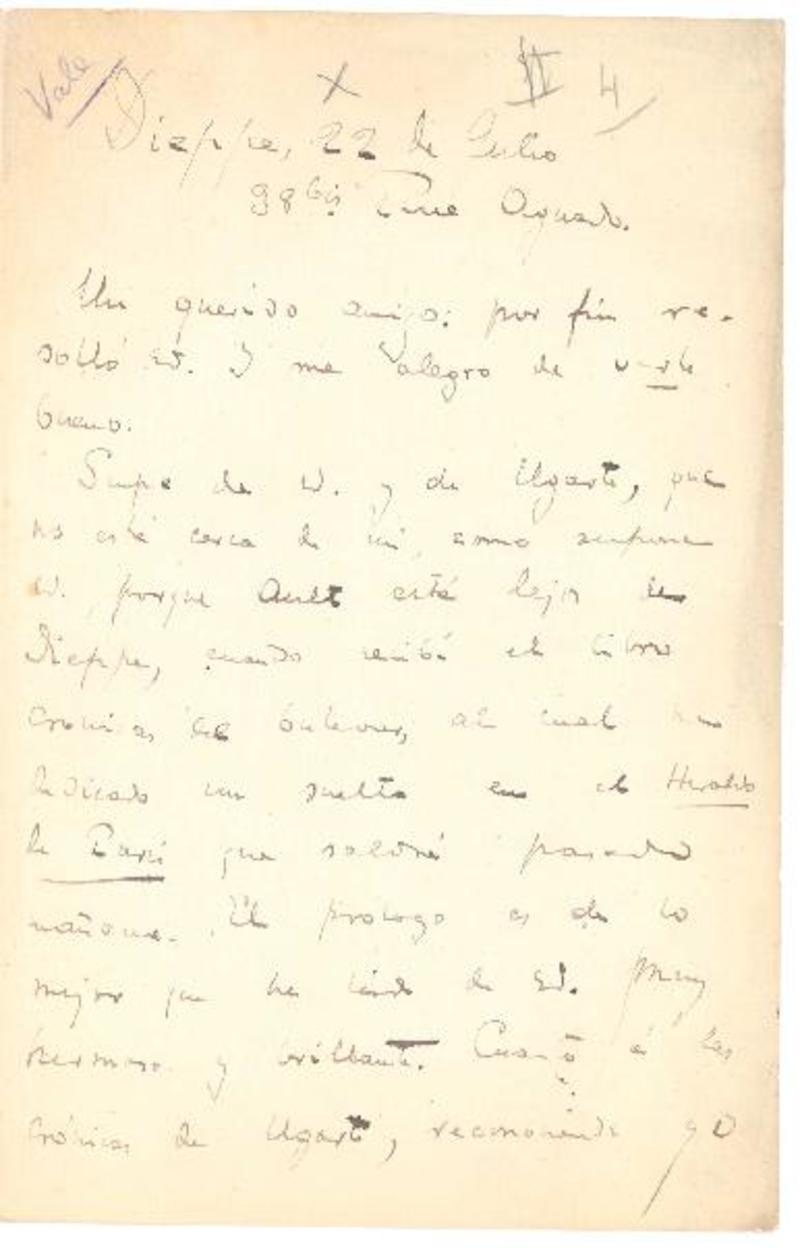 Vale
X VI 4
Dieppe, 22 de Julio
98 bis Rue Aguado.
Mi querido amigo: por fin re-
solló Ud. Y me alegro de verle
bueno.
Supe de Ud. y de Ugarte, que
no está cerca de mí, como supone
Ud., porque Ault está lejos de
Dieppe, cuando recibí el libro
Crónicas del bulevar, al cual he
dedicado un suelto en el Heraldo
de París que saldrá pasado
mañana. El prólogo es de lo
mejor que he leído de Ud. Muy
hermoso y brillante. Cuanto á las
crónicas de Ugarte, reconociendo yo